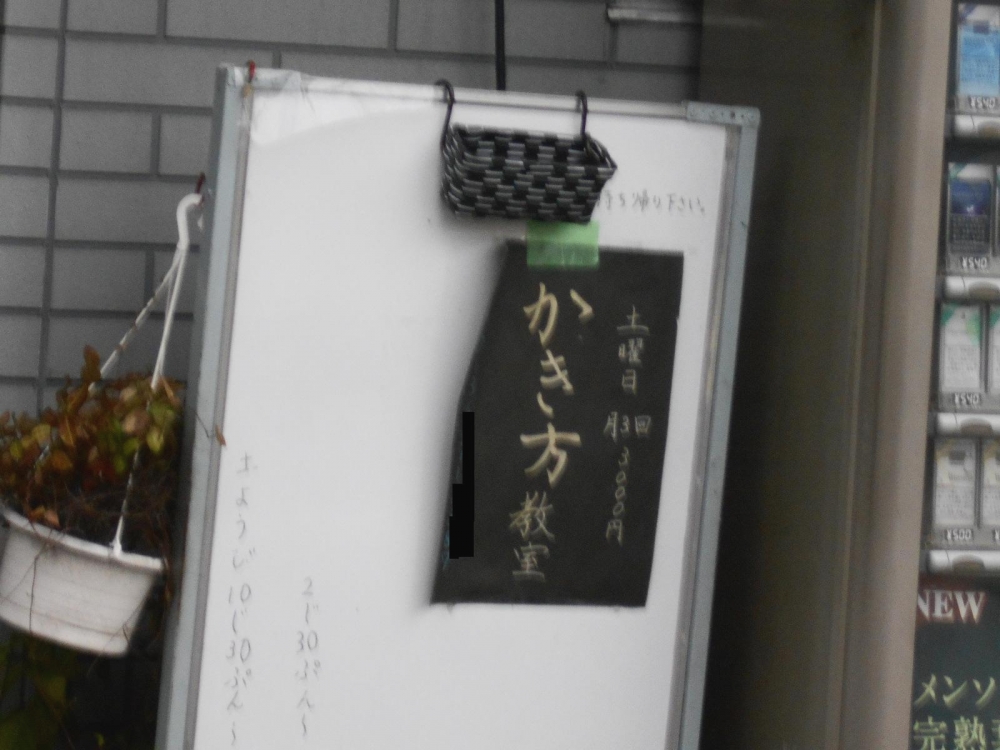 持ち帰り下さい。
土曜日 月3回 3000円
かき方教室
2じ30ぷん〜
土ようび 10じ30ぷん〜
¥540
¥540
¥540
¥500
NEW
メンソ
完熟